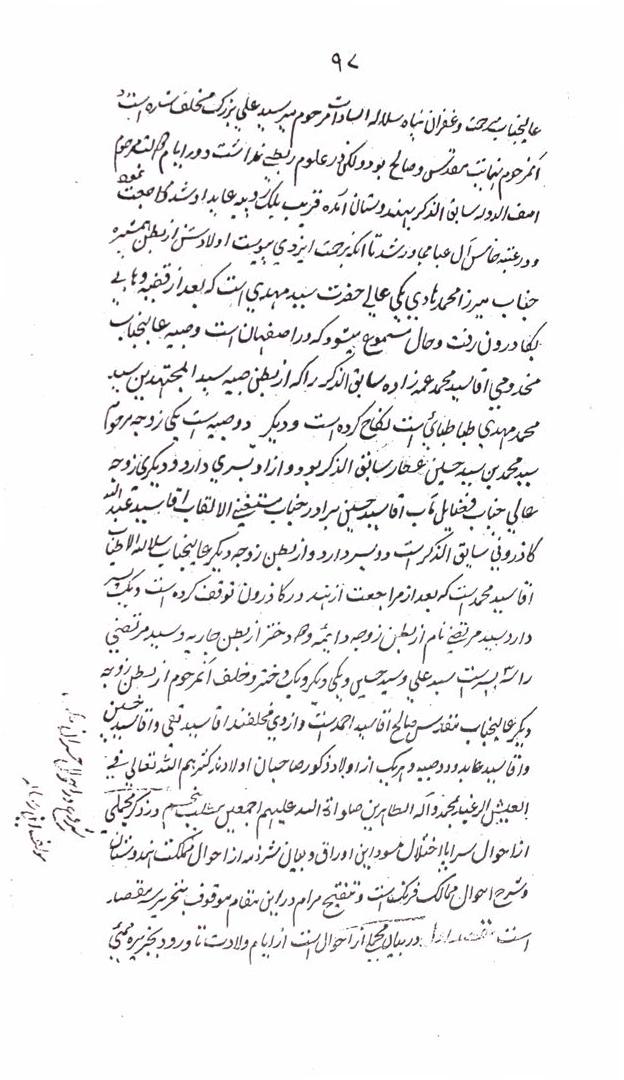 ۹۷
عالیجناب رحمت و غفران پناه سلاله السادات مرحوم میر سید علی بزرگ مخلف شده است
آنمرحوم نهایت مقدس و صالح بود ولکن در علوم ربطی نداشت و در ایام مرحوم
آصف الدوله سابق الذکر بهندوستان آمده قریب یلک روپیه عاید او شد مراجعت نموده
و در عتبه خامس آل عبا مجاور شد تا آنکه برحمت ایزدی پیوست اولادش از بطن همشیره
جناب میرزا محمد هادی یکی عالی حضرت سید مهدی است که بعد از قضیه وهابی
بکادرون رفت و حال مسموع میشود که در اصفهان است و صبیه عالیجناب
مخدومی آقا سید محمد عمه زاده سابق الذکر را که از بطن صبیه سید المجتهدین سید
محمد مهدی طباطبائی است نکاح کرده است و دیگر دو صبیه است یکی زوجه مرحوم
سید محمد بن سید حسین عطار سابق الذکر بود و از او پسری دارد و دیگری زوجه
عالی جناب فضایل مآب آقا سید حسین برادر جناب مستغنی الالقاب آقا سید عبد الله
کاذرونی سابق الذکر است دو پسر دارد و از بطن زوجه دیگر عالیجناب سلاله الاطیاب
آقا سید محمد است که بعد از مراجعت از هند در کاذرون توقف کرده است و یک پسر
دارد سید مرتضی نام از بطن زوجه دائمه و دختر از بطن جاریه و سید مرتضی
را سه پسر است سید علی و سید حسین و یکی دیگر و یک دختر و خلف آنمرحوم از بطن زوجه
دیگر عالیجناب مقدس صالح آقا سید احمد است و از وی مخلفند آقا سید تقی و آقا سید حسین
و آقا سید عابد و دو صبیه و هر یک از اولاد ذکور صاحبان اولادند کثرهم الله تعالی فی
العیش الرغید بمحمد و آله الطاهرین صلوات الله علیهم اجمعین مطلب پنجم در ذکر مجملی
از احوال سراپا اختلال مسود این اوراق و بیان شرذمه از احوال مملکت هندوستان
و شرح احوال ممالک فرنگ است و تنقیح مرام در این مقام موقوف بتحریر سه مقصد
است مقصد اول در بیان مجملی از احوال است از ایام ولادت تا ورود بجزیره بمبئی